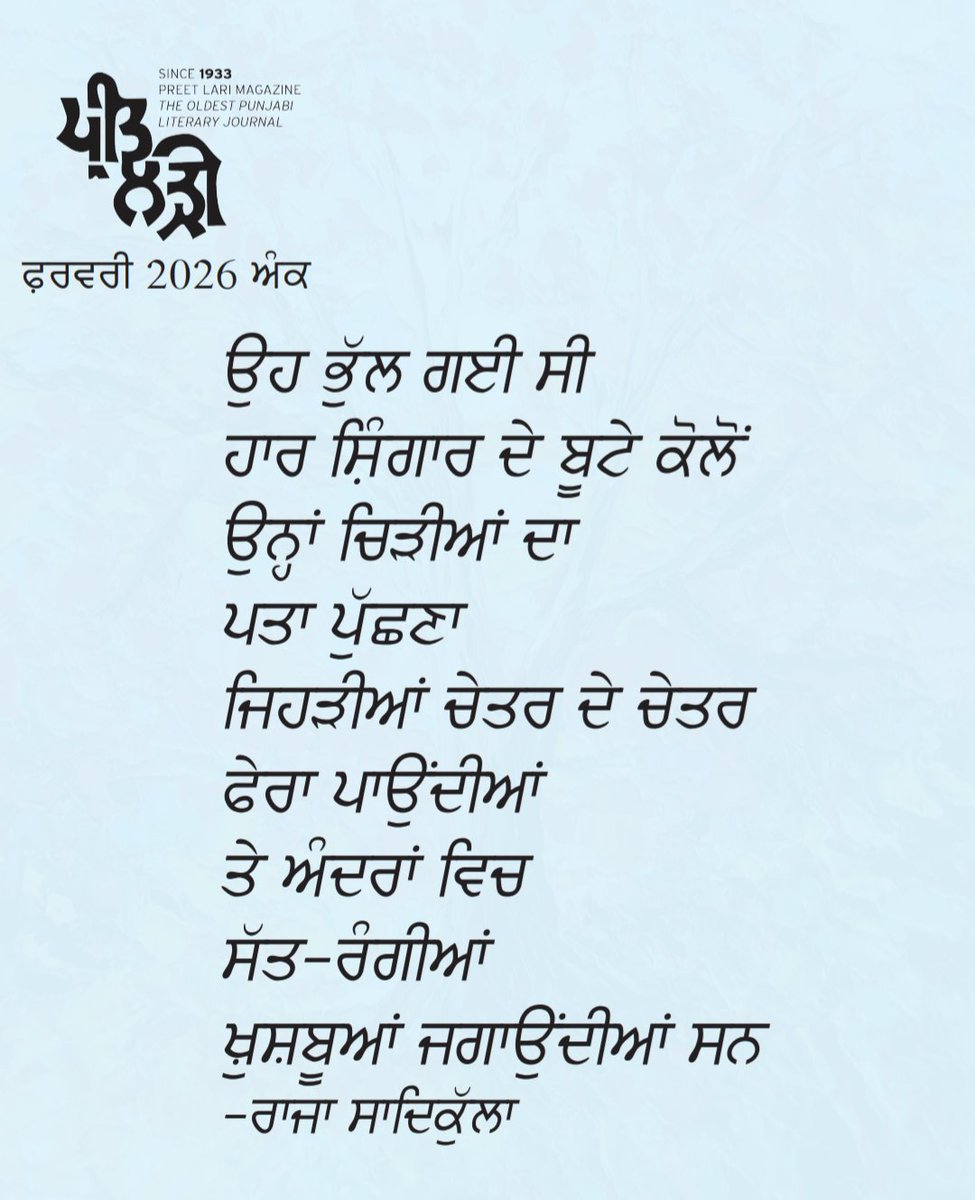 SINCE 1933
PREET LARI MAGAZINE
THE OLDEST PUNJABI
LITERARY JOURNAL
ਪ੍ਰੀਤ
ਲੜੀ
ਫ਼ਰਵਰੀ 2026 ਅੰਕ
ਉਹ ਭੁੱਲ ਗਈ ਸੀ
ਹਾਰ ਸ਼ਿੰਗਾਰ ਦੇ ਬੂਟੇ ਕੋਲੋਂ
ਉਨ੍ਹਾਂ ਚਿੜੀਆਂ ਦਾ
ਪਤਾ ਪੁੱਛਣਾ
ਜਿਹੜੀਆਂ ਚੇਤਰ ਦੇ ਚੇਤਰ
ਫੇਰਾ ਪਾਉਂਦੀਆਂ
ਤੇ ਅੰਦਰਾਂ ਵਿਚ
ਸੱਤ-ਰੰਗੀਆਂ
ਖ਼ੁਸ਼ਬੂਆਂ ਜਗਾਉਂਦੀਆਂ ਸਨ
-ਰਾਜਾ ਸਾਦਿਕੁੱਲਾ